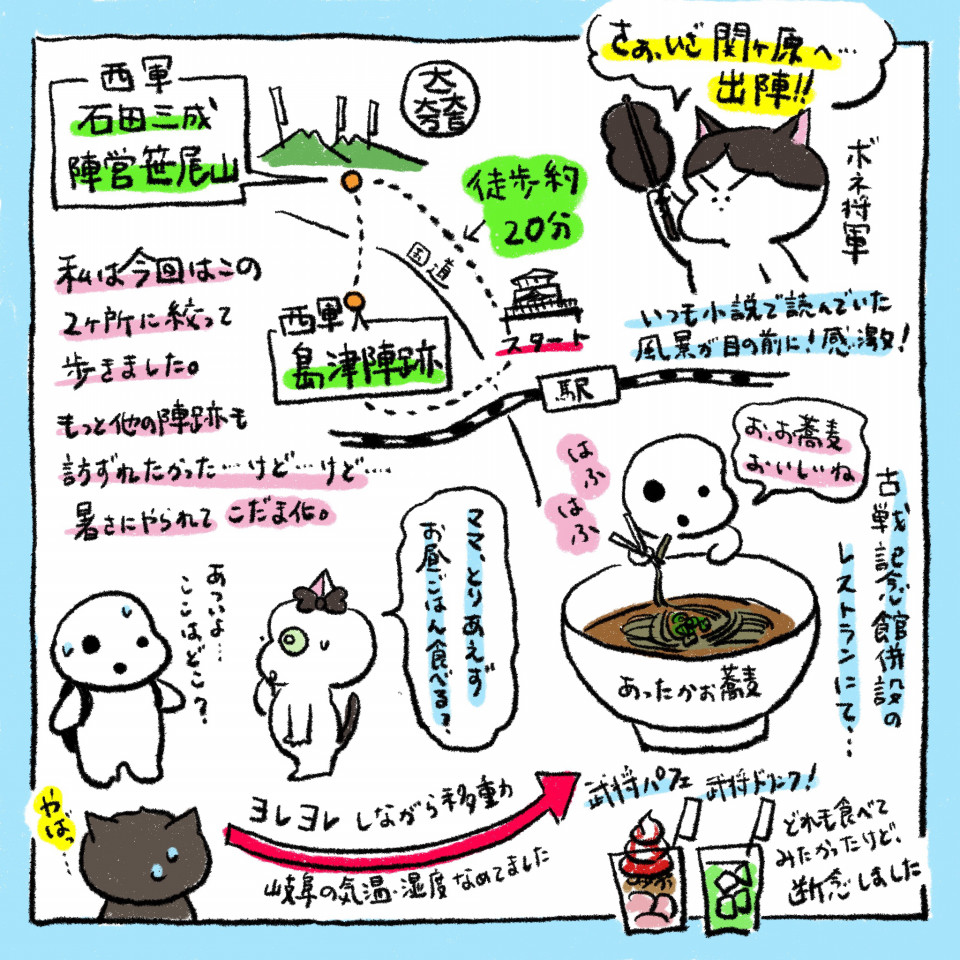 さぁ、いざ関ヶ原へ…
出陣!!
ボネ将軍
西軍
石田三成
陣営笹尾山
大一大万大吉
徒歩約
20分
国道
スタート
西軍
島津陣跡
駅
いつも小説で読んでいた
風景が目の前に!感激!
私は今回はこの
2ヶ所に絞って
歩きました。
もっと他の陣跡も
訪ずれたかった…けど…けど…
暑さにやられてこだま化。
あついよ…
ここはどこ?
ママ、とりあえず
お昼ごはん食べる?
はふ
はふ
お、お蕎麦
おいしいね
あったかお蕎麦
古戦記念館併設の
レストランにて…
やばっ…
ヨレヨレしながら移動
岐阜の気温・湿度なめてました
武将パフェ
武将ドリンク!
どれも食べて
みたかったけど、
断念しました